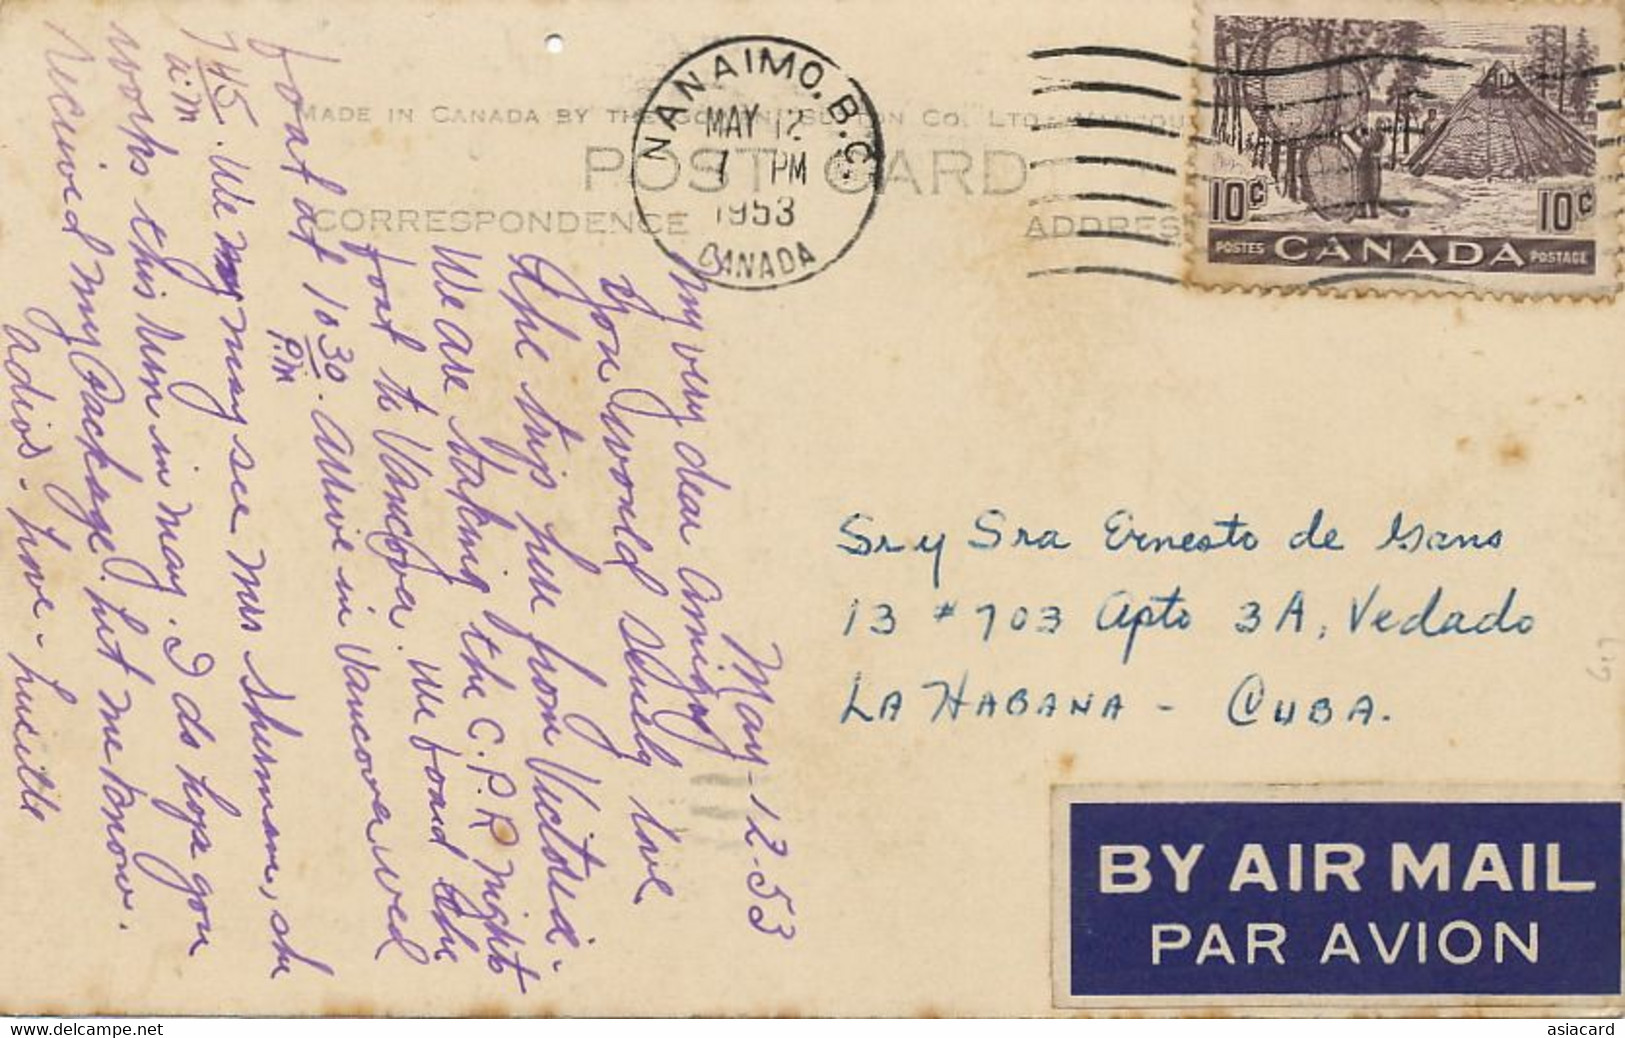 MADE IN CANADA BY THE CO. LTD.
POST CARD
CORRESPONDENCE
ADDRESS
NANAIMO. B.C.
MAY 12
7 PM
1953
CANADA
10¢ 10¢
POSTES CANADA POSTAGE
May-12-53
My very dear Amigos
You would surely love
the trip here from Victoria-
We are taking the C.P.R night
boat to Vancover. We board the
boat at 10 30 P.m. Arrive in Vancover wed
7 45 a.m. We may see Mrs Sherman, she
works this in May. I do hope you
received my Package. Let me know.
Adios - Love - Lucille
Sr y Sra Ernesto de Gans
13 # 703 Apto 3A, Vedado
LA HABANA - CUBA.
BY AIR MAIL
PAR AVION
www.delcampe.net
asiacard